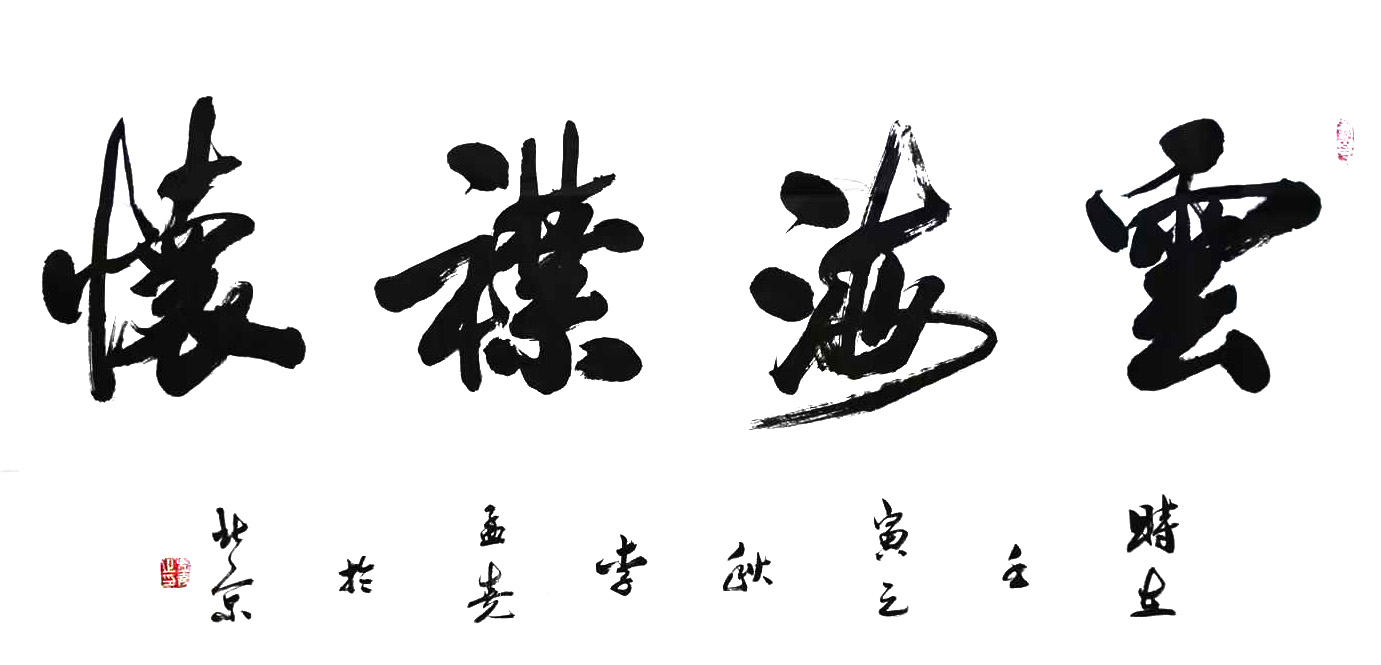 雲海襟懷
時在壬寅之秋李孟堯於北京